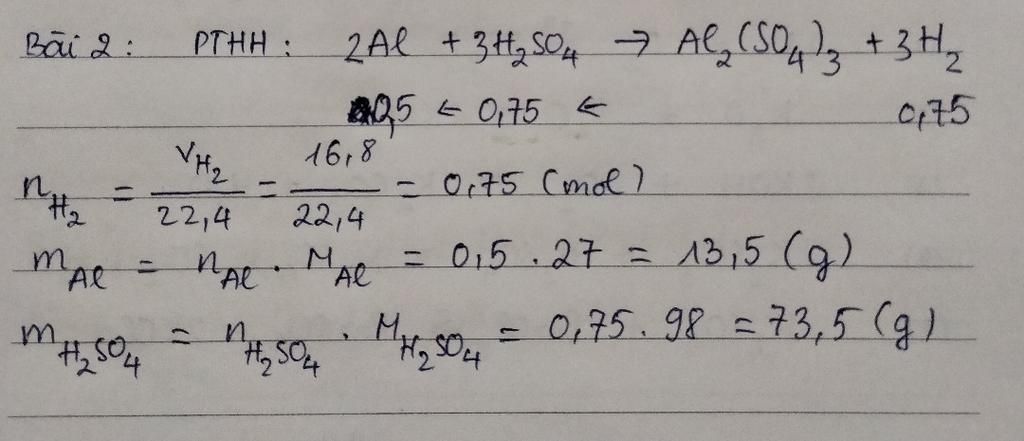 Bài 2 : PTHH : 2Al + 3H₂SO₄ → Al₂(SO₄)₃ + 3H₂
0,5 ← 0,75 ← 0,75
n_H₂ = V_H₂/22,4 = 16,8/22,4 = 0,75 (mol)
m_Al = n_Al . M_Al = 0,5 . 27 = 13,5 (g)
m_H₂SO₄ = n_H₂SO₄ . M_H₂SO₄ = 0,75 . 98 = 73,5 (g)